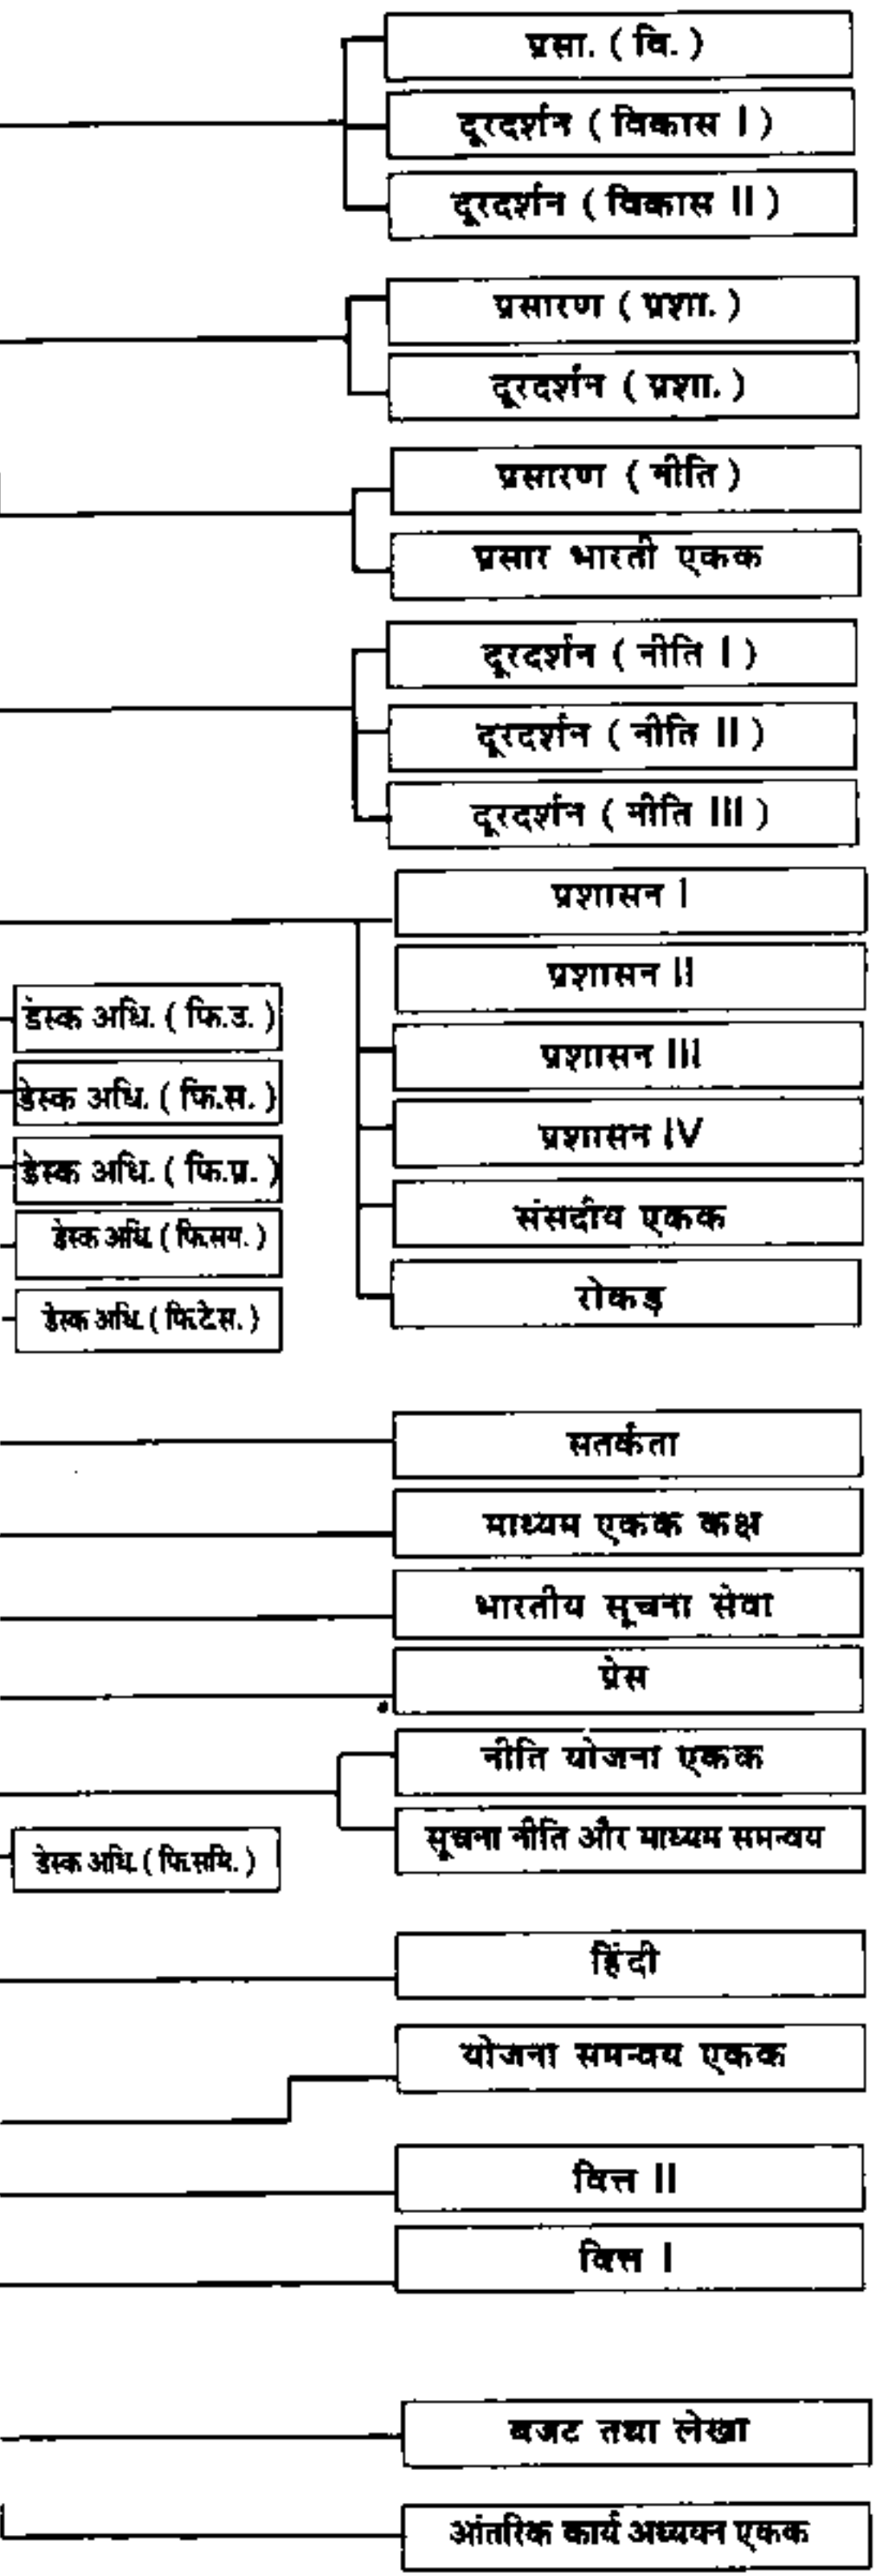 प्रसा. ( वि. )
दूरदर्शन ( विकास I )
दूरदर्शन ( विकास II )
प्रसारण ( प्रशा. )
दूरदर्शन ( प्रशा. )
प्रसारण ( नीति )
प्रसार भारती एकक
दूरदर्शन ( नीति I )
दूरदर्शन ( नीति II )
दूरदर्शन ( नीति III )
प्रशासन I
प्रशासन II
डेस्क अधि. ( फि.उ. )
प्रशासन III
डेस्क अधि. ( फि.स. )
प्रशासन IV
डेस्क अधि. ( फि.प्र. )
संसदीय एकक
डेस्क अधि. ( फि.सम. )
रोकड़
डेस्क अधि. ( फि.टे.स. )
सतर्कता
माध्यम एकक कक्ष
भारतीय सूचना सेवा
प्रेस
नीति योजना एकक
सूचना नीति और माध्यम समन्वय
डेस्क अधि. ( फि.समि. )
हिंदी
योजना समन्वय एकक
वित्त II
वित्त I
बजट तथा लेखा
आंतरिक कार्य अध्ययन एकक